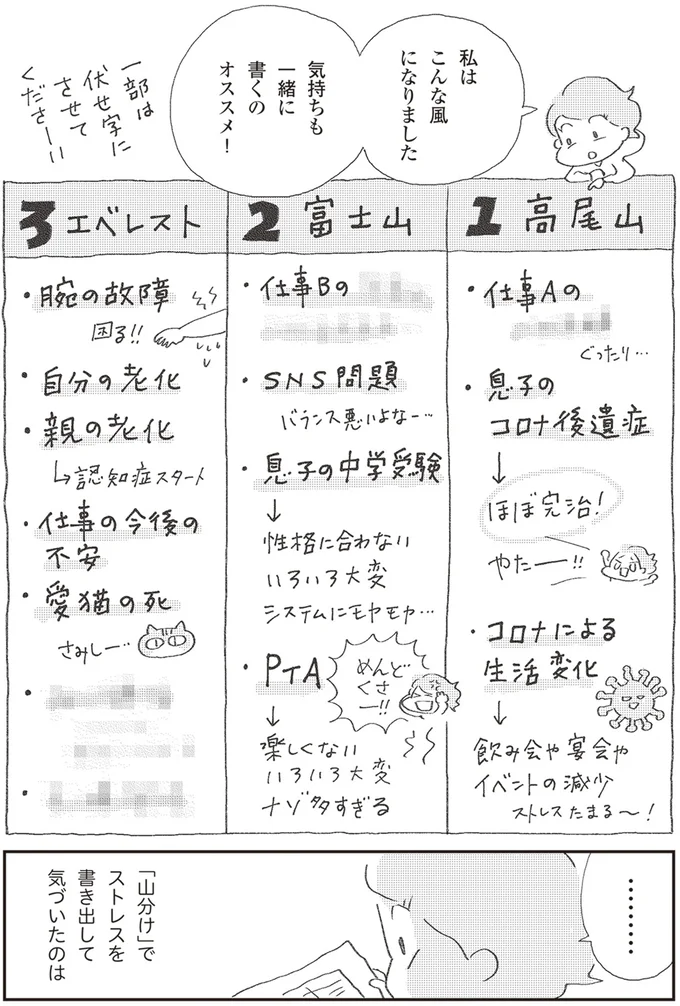 私は
こんな風
になりました
気持ちも
一緒に
書くの
オススメ！
一部は
伏せ字に
させて
くださーい
1 高尾山
・仕事Aの
ぐったり…
・息子の
コロナ後遺症
↓
ほぼ完治！
やたー!!
・コロナによる
生活変化
↓
飲み会や宴会や
イベントの減少
ストレスたまる〜！
2 富士山
・仕事Bの
・SNS問題
バランス悪いよなー…
・息子の中学受験
↓
性格に合わない
いろいろ大変
システムにモヤモヤ…
・PTA
めんど
くさ
ー!!
↓
楽しくない
いろいろ大変
ナゾ多すぎる
3 エベレスト
・腕の故障
困る!!
・自分の老化
・親の老化
↳認知症スタート
・仕事の今後の
不安
・愛猫の死
さみしー…
………
「山分け」で
ストレスを
書き出して
気づいたのは